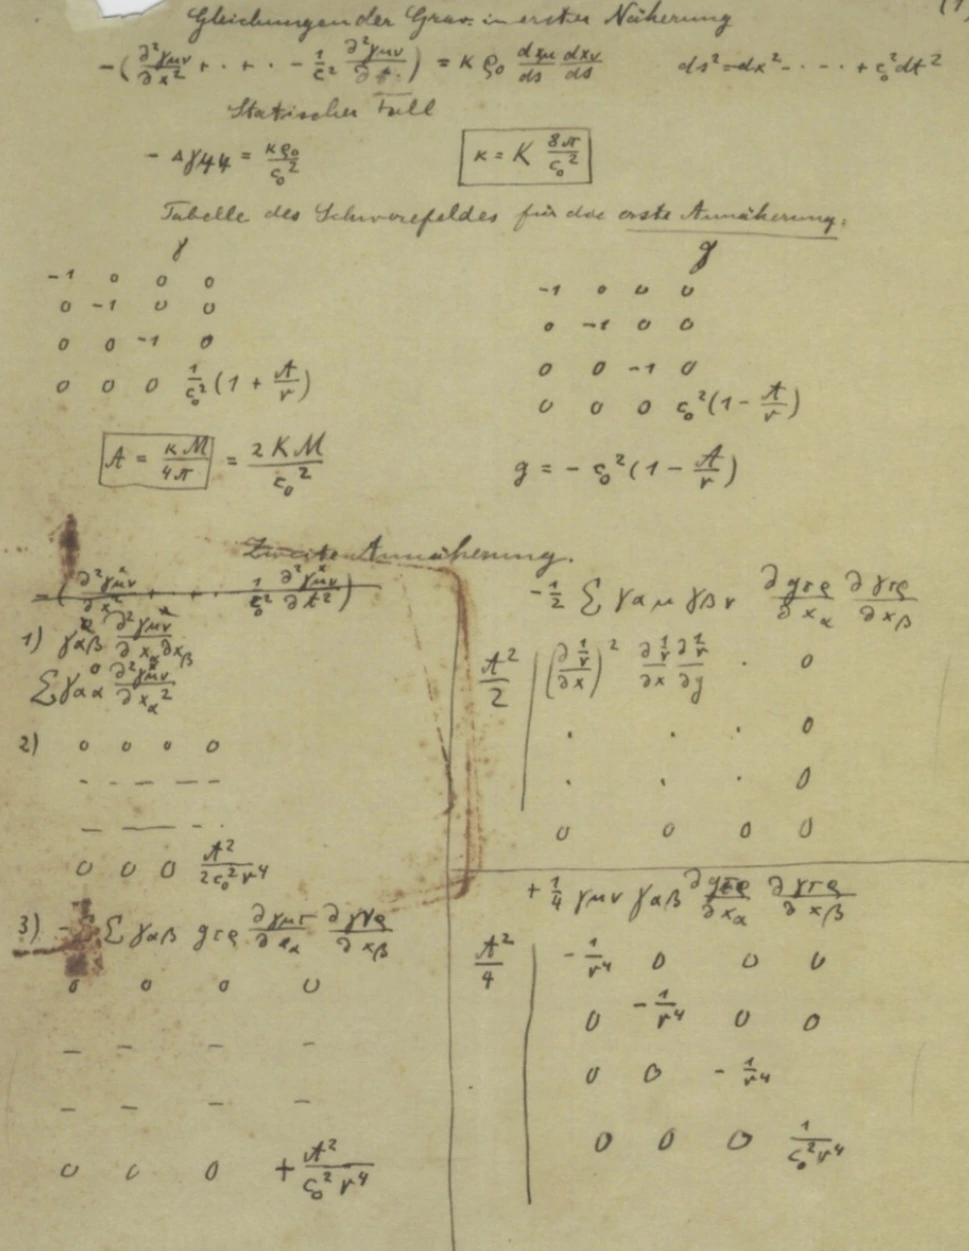 Gleichungen der Grav. in erster Näherung
(1)
-(∂²γμν/∂x² + · + · - 1/c² ∂²γμν/∂t²) = κ ρ₀ dxμ/ds dxν/ds    ds² = -dx² - · · · + c₀² dt²
Statischer Fall
- Δγ44 = κρ₀/c₀²    κ = K 8π/c₀²
Tabelle des Schwerefeldes für die erste Annäherung.
γ    g
-1 0 0 0    -1 0 0 0
0 -1 0 0    0 -1 0 0
0 0 -1 0    0 0 -1 0
0 0 0 1/c₀² (1 + A/r)    0 0 0 c₀² (1 - A/r)
A = κM/4π = 2KM/c₀²    g = - c₀² (1 - A/r)
Zweite Annäherung.
-(∂²γμν^x/∂x² + · + · 1/c₀² ∂²γμν^x/∂t²)
1) γαβ ∂²γμν^x/∂xα∂xβ
Σ γαα ∂²γμν^x/∂xα²
2) 0 0 0 0
- - - - -
- - - -
0 0 0 A²/2c₀²r⁴
3) - Σ γαβ gτρ ∂γμτ/∂xα ∂γνρ/∂xβ
0 0 0 0
- - - -
- - - -
0 0 0 + A²/c₀²r⁴
-1/2 Σ γαμ γβν ∂gτρ/∂xα ∂γτρ/∂xβ
A²/2 | (∂1/r/∂x)² ∂1/r/∂x ∂1/r/∂y · 0
· · · 0
· · · 0
0 0 0 0
+ 1/4 γμν γαβ ∂gτρ/∂xα ∂γτρ/∂xβ
A²/4 | -1/r⁴ 0 0 0
0 -1/r⁴ 0 0
0 0 -1/r⁴
0 0 0 1/c₀²r⁴